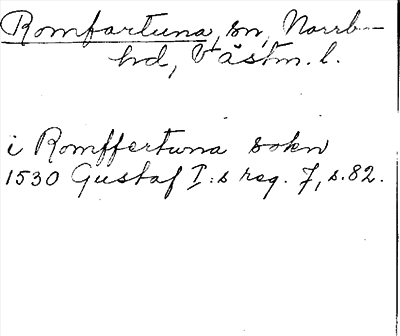 Romfartuna, sn, Norrb-
hd, Västm. l.
i Romffertuna sokn
1530 Gustaf I:s reg. 7, s. 82.